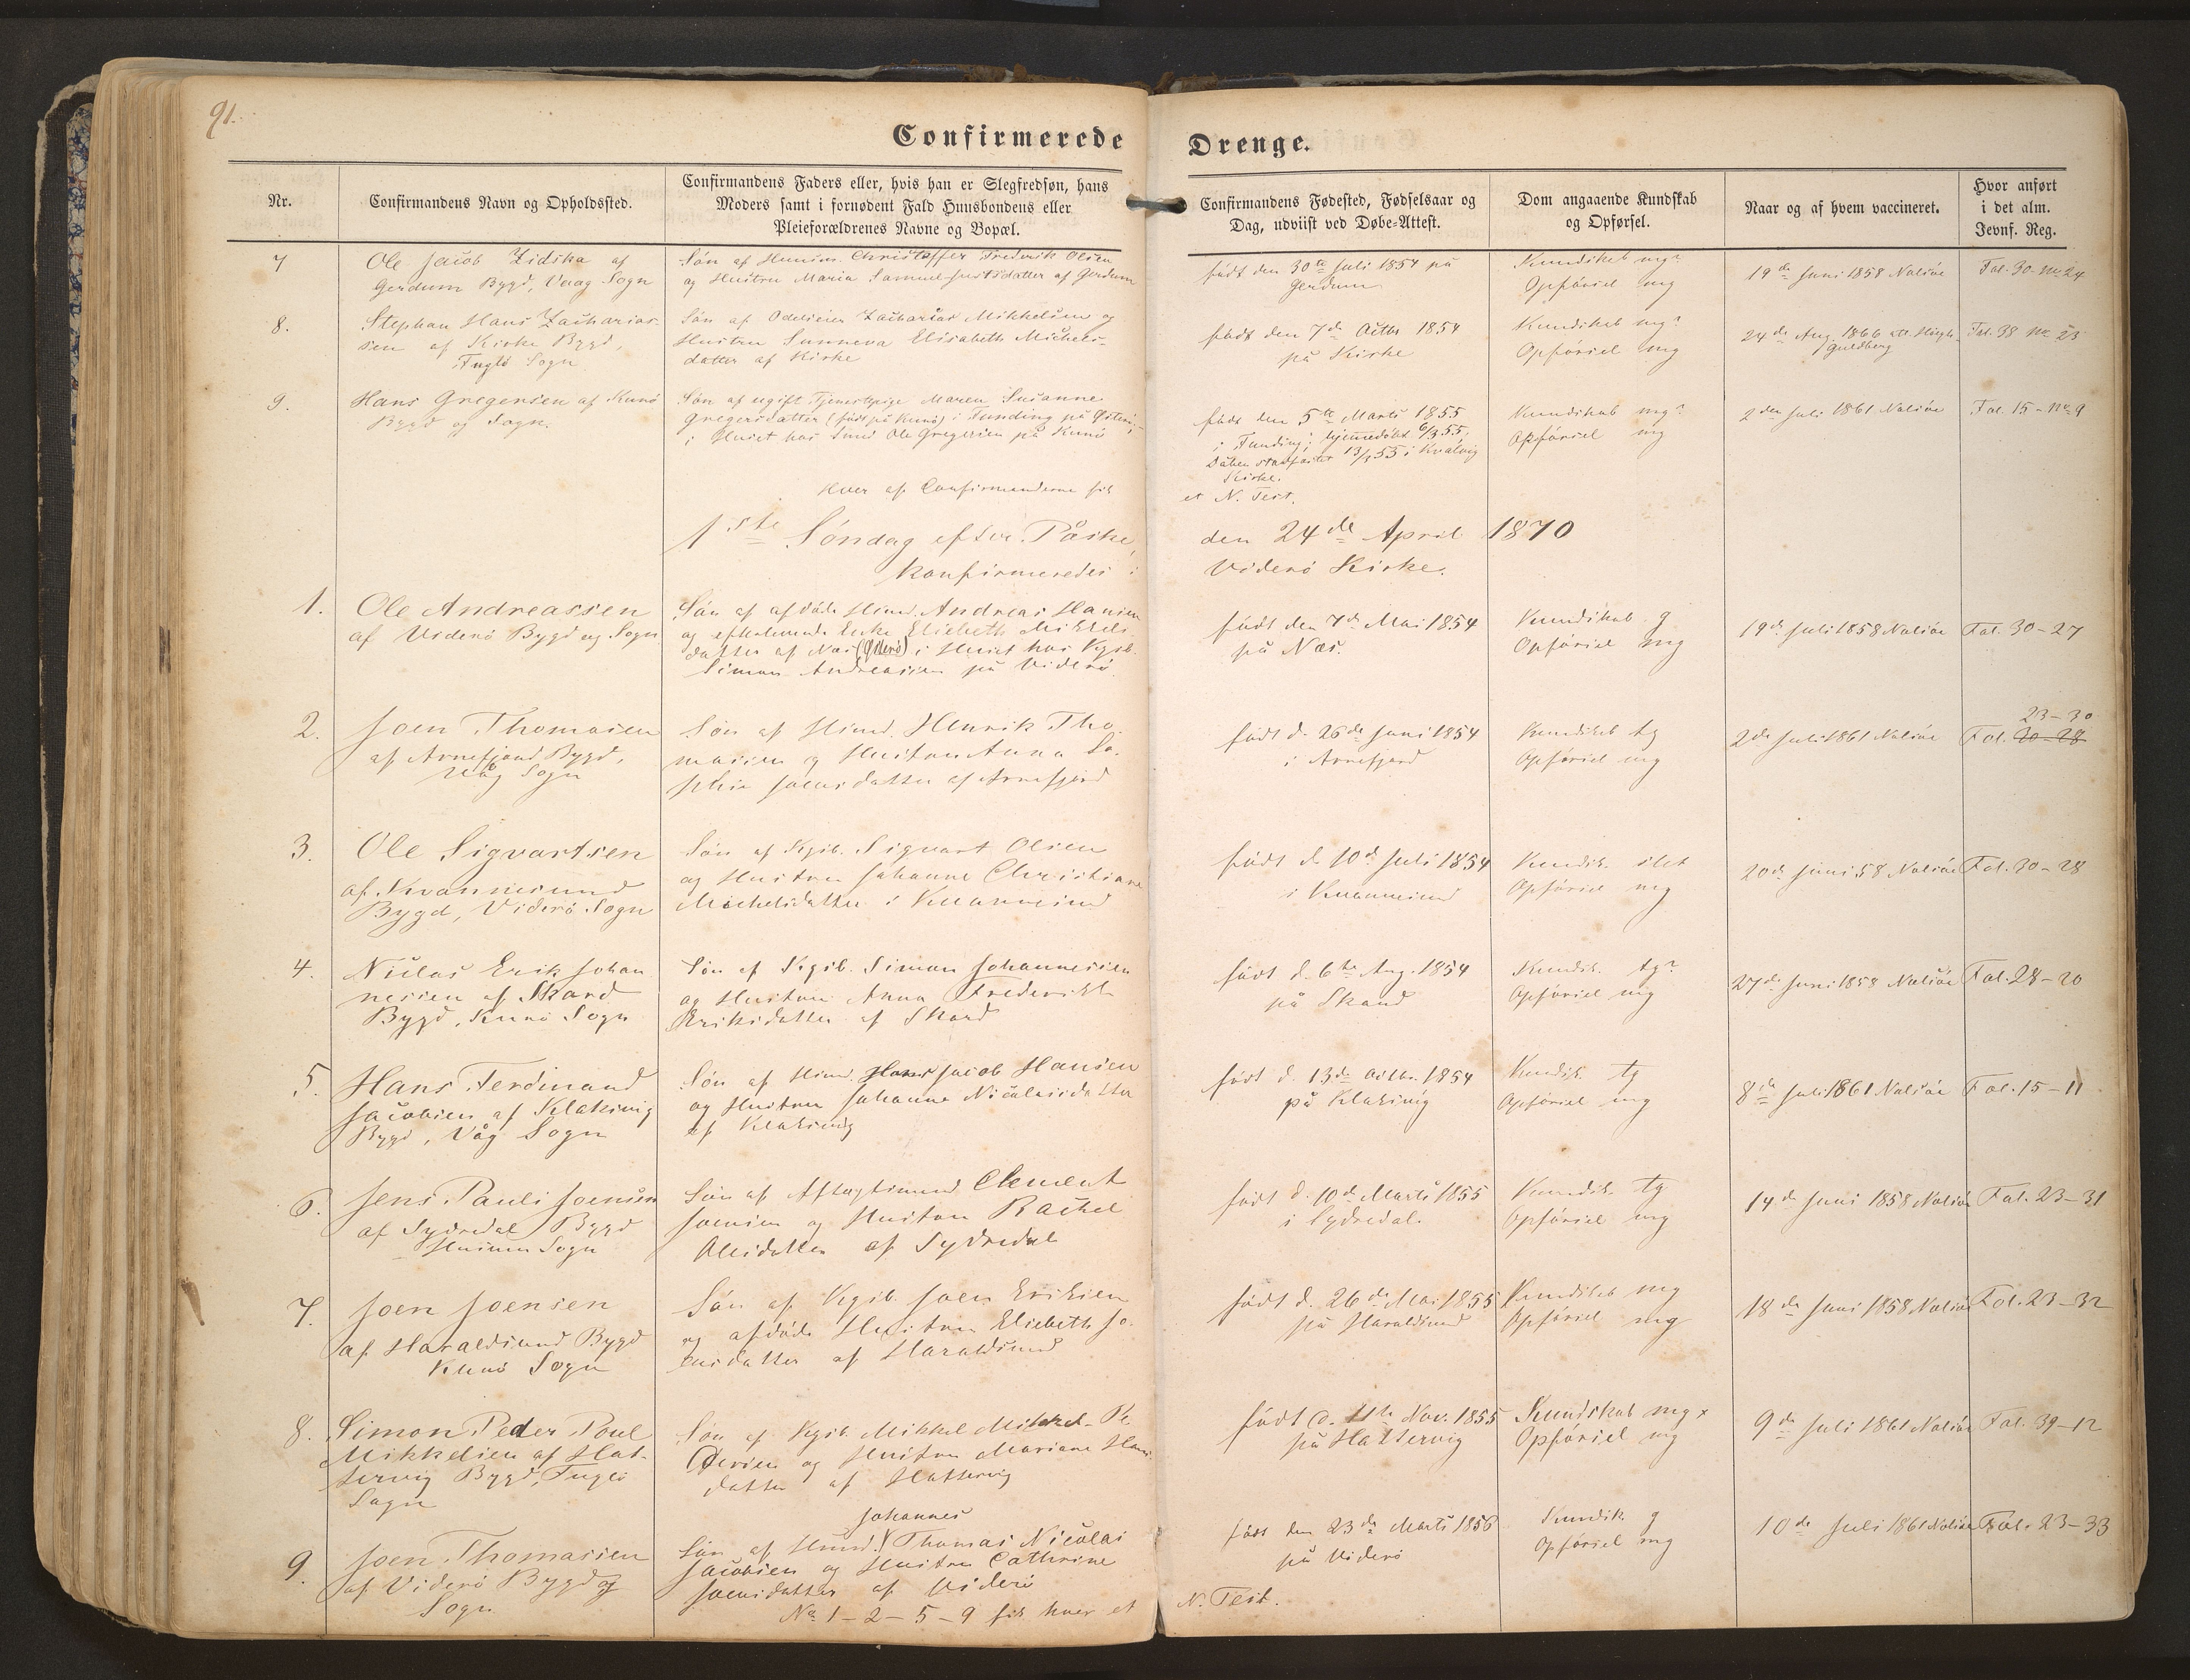 91.
Confirmerede Drenge.
Nr.
Confirmandens Navn og Opholdssted.
Confirmandens Faders eller, hvis han er Slegfredsøn, hans
Moders samt i fornødent Fald Huusbondens eller
Pleieforældrenes Navne og Bopæl.
Confirmandens Fødested, Fødselsaar og
Dag, udviist ved Døbe-Attest.
Dom angaaende Kundskab
og Opførsel.
Naar og af hvem vaccineret.
Hvor anført
i det alm.
Jevnf. Reg.
7
Ole Jacob Zidska af
Gerdum Bygd, Vaag Sogn
Søn af Christoffer Frederik Olsen
og Hustru Maria af Gerdum
født den 30te Juli 1854 på
Gerdum
Kundskab mg?
Opførsel mg
19de Juni 1858 Nolsøe
Fol. 30- no 24
8.
Stephan Hans Zacharias-
sen af Kirke Bygd,
Fuglø Sogn
Søn af Zacharias Mikkelsen og
Hustru Sunneva Elisabeth Michels-
datter af Kirke
født den 7de Octbr 1854
på Kirke
Kundskab mg?
Opførsel mg
24de Aug. 1866 att.
Guldberg
Fol. 38 no 23
9.
Hans Gregersen af Kunø
Bygd og Sogn.
Søn af ugift Tjenestepige Maren Susanne
Gregersdatter (født på Kunø) i Funding på Østerø,
i Huset hos Ole Gregersen på Kunø
født den 5te Marts 1855
i Funding; hjemmedøbt 6/3 55.
Dåben stadfæstet 13/5 55 i Kvalvig
Kirke.
Kundskab mg?
Opførsel mg
2den Juli 1861 Nolsøe
Fol. 15 - no 9
Hver af Confirmanderne fik
et N. Test.
1ste Søndag efter Påske, den 24de April 1870
konfirmeredes i Viderø Kirke.
1.
Ole Andreassen
af Viderø Bygd og Sogn
Søn af afdøde Andreas Hansen
og efterlevende Enke Elisbeth Mikkels-
datter af Næs (Østerø) i Huset hos Kgsb.
Simon Andreassen på Viderø.
født den 7de Mai 1854
på Næs.
Kundskab g
Opførsel mg
19de Juli 1858 Nolsøe
Fol. 30-27
2.
Joen Thomasen
af Arnefjord Bygd,
Våg Sogn
Søn af Henrik Tho-
masen og Hustru Anna So-
phie Joensdatter af Arnefjord
født d. 26de Juni 1854
i Arnefjord
Kundskab tg
Opførsel mg
2de Juli 1861 Nolsøe
23-30
Fol. 30-28
3.
Ole Sigvartsen
af Kvannesund
Bygd, Viderø Sogn
Søn af Kgsb. Sigvart Olsen
og Hustru Johanne Christiane
Michelsdatter i Kvannesund
født d. 10de Juli 1854
i Kvannesund
Kundsk. slet
Opførsel mg
20de Juni 58 Nolsøe
Fol. 30-28
4.
Niclas Erik Johan
nessen af Skard
Bygd, Kunø Sogn
Søn af Kgsb. Simon Johannessen
og Hustru Anna Frederikke
Eriksdatter af Skard
født d. 6te Aug. 1854
på Skard
Kundsk. tg?
Opførsel mg
27de Juni 1858 Nolsøe
Fol. 28-20
5.
Hans Ferdinand
Jacobsen af Klaksvig
Bygd, Våg Sogn
Søn af Hans Jacob Hansen
og Hustru Johanna Nicolaisdatter
af Klaksvig
født d. 13de Octbr. 1854
på Klaksvig
Kundsk. tg
Opførsel mg
8de Juli 1861 Nolsøe
Fol. 15-11
6.
Jens Pauli Joensen
af Sydredal Bygd
Husum Sogn
Søn af Aftægtsmand Clement
Joensen og Hustru Rachel
Olesdatter af Sydredal
født d. 10de Marts 1855
i Sydredal.
Kundsk. tg
Opførsel mg
14de Juni 1858 Nolsøe
Fol. 23-31
7.
Joen Joensen
af Haraldsund Bygd
Kunø Sogn
Søn af Kgsb. Joen Eriksen
og afdøde Hustru Elisbeth Jo-
ensdatter af Haraldsund
født d. 26de Mai 1855
på Haraldsund
Kundskab mg
Opførsel mg
18de Juni 1858 Nolsøe
Fol. 23-32
8.
Simon Peder Poul
Mikkelsen af Hat-
tervig Bygd, Fuglø
Sogn
Søn af Kgsb. Mikkel Mikkel Pe
dersen og Hustru Mariane Hans-
datter af Hattervig
født d. 11te Nov. 1855
på Hattervig
Kundskab mg x
Opførsel mg
9de Juli 1861 Nolsøe
Fol. 39-12
9.
Joen Thomasen
af Viderø Bygd og
Sogn
Johannes
Søn af Thomas Nicolai
Jacobsen og Hustru Cathrine
Joensdatter af Viderø
født den 23de Marts 1856
på Viderø
Kundsk. g
Opførsel mg
10de Juli 1861 Nolsøe
Fol. 23-33
No 1-2-5-9 fik hver et
N. Test.